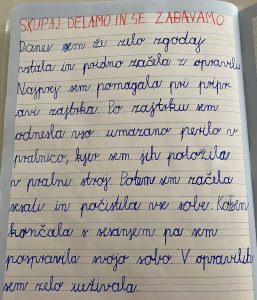 SKUPAJ DELAMO IN SE ZABAVAMO
Danes sem že zelo zgodaj
vstala in pridno začela z opravili.
Najprej sem pomagala pri pripr
avi zajtrka. Po zajtrku sem
odnesla vso umazano perilo v
pralnico, kjer sem jih položila
v pralni stroj. Potem sem začela
sesati in počistila vse sobe. Ko sem
končala s sesanjem pa sem
pospravila svojo sobo. V opravilih
sem zelo uživala.